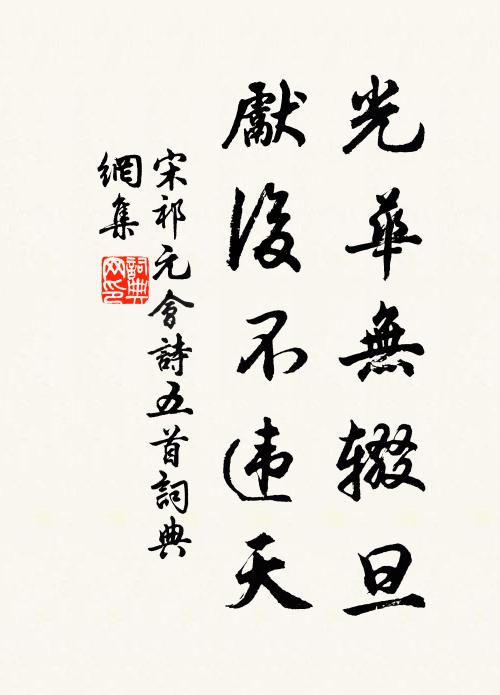 光華無辍旦
獻後不违天
宋祁元會詩五首詞典
網集
詞典
网印